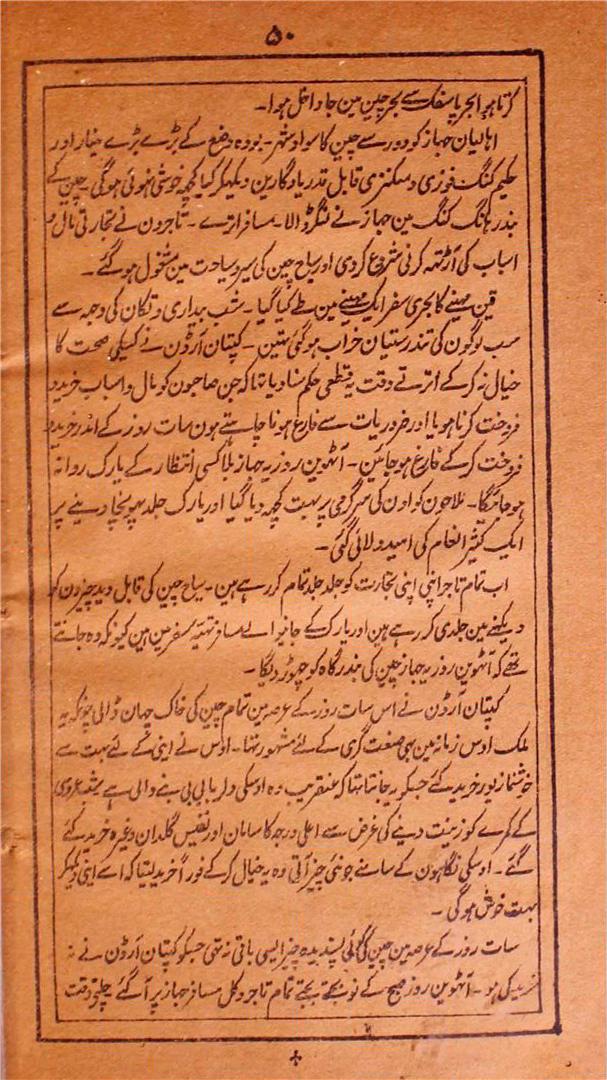 ۵۰
کرتا ہوا بحر پاسفک سے بحر چین مین جا داخل ہوا۔
اہالیان جہاز کو دور سے چین کا سواد شہر۔ بودہ وضع کے بڑے بڑے مینار اور
حکیم کنگ فوزی و منکنزی قابل قدر یادگارین دیکھکر کیا کچھ خوشی نہوئی ہوگی۔ چین کے
بندر ہانگ کنگ مین جہاز نے لنگر ڈالا۔ مسافر اترے۔ تاجرون نے تجارتی مال و
اسباب کی آڑتھ کرنی شروع کردی اور سیاح چین کی سیر و سیاحت مین مشغول ہو گئے۔
تین مہینے کا بحری سفر ایک مہینے مین طے کیا گیا۔ شب بیداری و تکان کی وجہ سے
سب لوگون کی تندرستیان خراب ہوگئی تہین۔ کپتان آرڈن نے کسیکی صحت کا
خیال نہ کرکے اترتے وقت یہ قطعی حکم سنا دیا تہا کہ جن صاحبون کو مال و اسباب خرید و
فروخت کرنا ہو یا اور ضروریات سے فارغ ہونا چاہتے ہون سات روز کے اندر خرید و
فروخت کرکے فارغ ہو جائین۔ آٹہوین روز یہ جہاز بلا کسی انتظار کے یارک روانہ
ہو جائیگا۔ ملاحون کو اون کی سرگرمی پر بہت کچھ دیا گیا اور یارک جلد پہونچا دینے پر
ایک کثیر انعام کی امید دلائی گئی۔
اب تمام تاجر اپنی اپنی تجارت کو جلد جلد تمام کر رہے ہین۔ سیاح چین کی قابل دید چیزون کو
دیکہنے مین جلدی کر رہے ہین اور یارک کے جانیوالے مسافر تہیۂ سفر مین ہین کیونکہ وہ جانتے
تھے کہ آٹہوین روز یہ جہاز چین کی بندرگاہ کو چہوڑ دیگا۔
کپتان آرڈن نے اس سات روز کے عرصہ مین تمام چین کی خاک چہان ڈالی چونکہ یہ
ملک اوس زمانہ مین بہی صنعت گری کے لئے مشہور تہا۔ اوس نے اینی کے لئے بہت سے
خوشنما زیور خرید کئے جسکو یہ جانتا تہا کہ عنقریب وہ اوسکی دلربا بی بی بننے والی ہے شب عروسی
کے کمرے کو زینت دینے کی غرض سے اعلی درجہ کا سامان اور نفیس گلدان وغیرہ خرید کئے
گئے۔ اوسکی نگاہون کے سامنے جو نئی چیز آتی وہ یہ خیال کرکے فوراً خرید لیتا کہ اسے اینی دیکہکر
بہت خوش ہوگی۔
سات روز کے عرصہ مین چین کی کوئی پسندیدہ چیز ایسی باقی نہ تہی جسکو کپتان آرڈن نے نہ
خرید کی ہو۔ آٹہوین روز صبح کے نو بجتے بجتے تمام تاجر و کل مسافر جہاز پر آگئے چلتے وقت